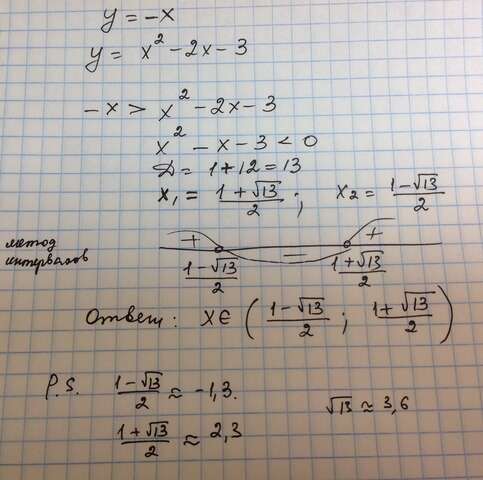 y = -x
y = x² - 2x - 3
-x > x² - 2x - 3
x² - x - 3 < 0
D = 1 + 12 = 13
x₁ = (1 + √13)/2 ; x₂ = (1 - √13)/2
метод интервалов
+ − +
(1 - √13)/2 (1 + √13)/2
Ответ: x ∈ ( (1 - √13)/2 ; (1 + √13)/2 )
P.S. (1 - √13)/2 ≈ -1,3. √13 ≈ 3,6
(1 + √13)/2 ≈ 2,3